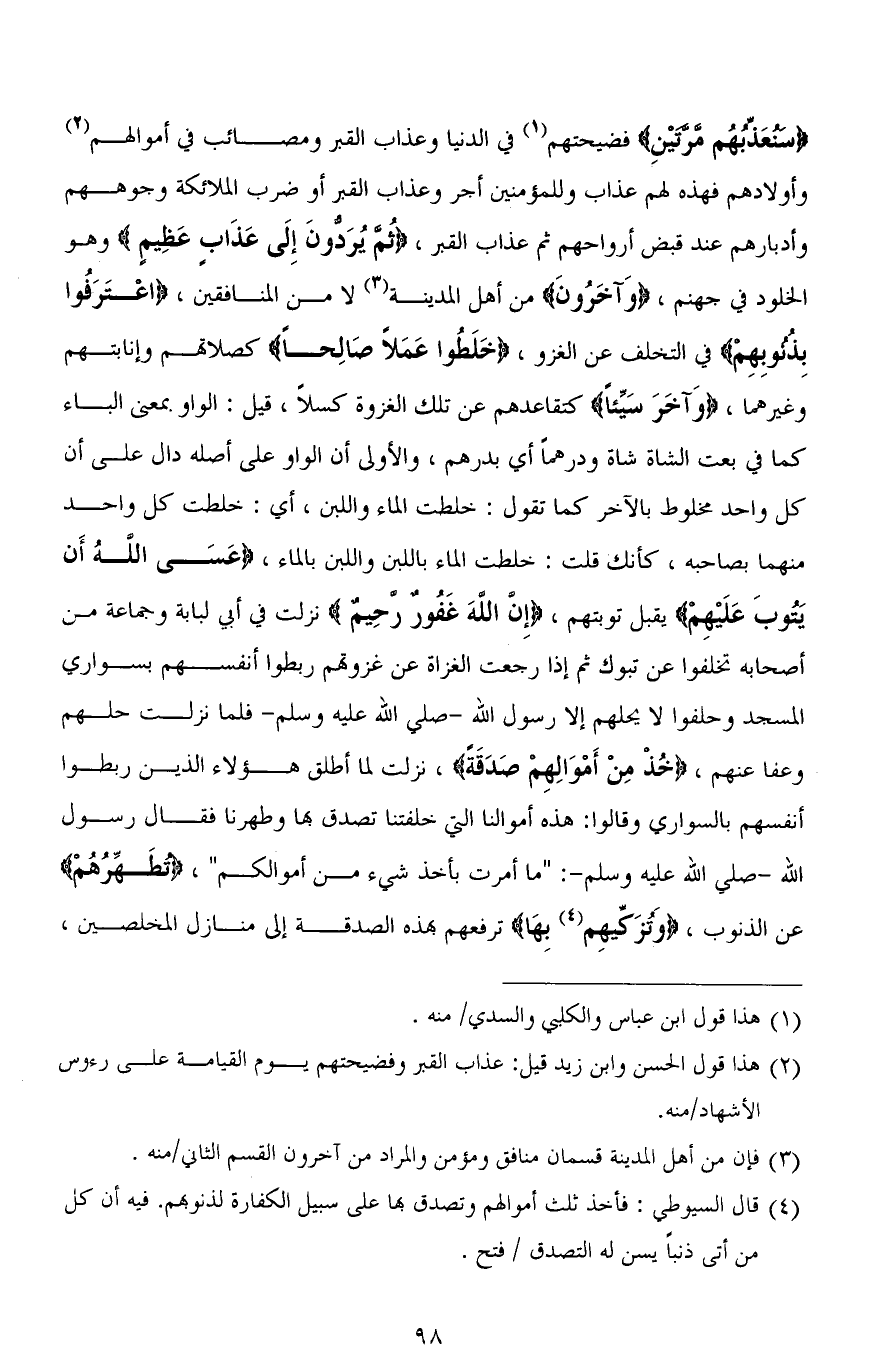 ﴿سَنُعَذِّبُهُم مَّرَّتَيْنِ﴾ فضيحتهم(١) في الدنيا وعذاب القبر ومصائب في أموالهم(٢)
وأولادهم فهذه لهم عذاب وللمؤمنين أجر وعذاب القبر أو ضرب الملائكة وجوههم
وأدبارهم عند قبض أرواحهم ثم عذاب القبر ، ﴿ثُمَّ يُرَدُّونَ إِلَى عَذَابٍ عَظِيمٍ﴾ وهو
الخلود في جهنم ، ﴿وَآخَرُونَ﴾ من أهل المدينة(٣) لا من المنافقين ، ﴿اعْتَرَفُوا
بِذُنُوبِهِمْ﴾ في التخلف عن الغزو ، ﴿خَلَطُوا عَمَلاً صَالِحاً﴾ كصلاتهم وإنابتهم
وغيرهما ، ﴿وَآخَرَ سَيِّئاً﴾ كتقاعدهم عن تلك الغزوة كسلاً ، قيل : الواو بمعنى الباء
كما في بعت الشاة شاة ودرهماً أي بدرهم ، والأولى أن الواو على أصله دال على أن
كل واحد مخلوط بالآخر كما تقول : خلطت الماء واللبن ، أي : خلطت كل واحد
منهما بصاحبه ، كأنك قلت : خلطت الماء باللبن واللبن بالماء ، ﴿عَسَى اللَّهُ أَن
يَتُوبَ عَلَيْهِمْ﴾ يقبل توبتهم ، ﴿إِنَّ اللَّهَ غَفُورٌ رَّحِيمٌ﴾ نزلت في أبي لبابة وجماعة من
أصحابه تخلفوا عن تبوك ثم إذا رجعت الغزاة عن غزوتهم ربطوا أنفسهم بسواري
المسجد وحلفوا لا يحلهم إلا رسول الله -صلي الله عليه وسلم- فلما نزلت حلهم
وعفا عنهم ، ﴿خُذْ مِنْ أَمْوَالِهِمْ صَدَقَةً﴾ ، نزلت لما أطلق هؤلاء الذين ربطوا
أنفسهم بالسواري وقالوا: هذه أموالنا التي خلفتنا تصدق بها وطهرنا فقال رسول
الله -صلي الله عليه وسلم-: "ما أمرت بأخذ شيء من أموالكم" ، ﴿تُطَهِّرُهُمْ﴾
عن الذنوب ، ﴿وَتُزَكِّيهِم(٤) بِهَا﴾ ترفعهم بهذه الصدقة إلى منازل المخلصين ،
(١) هذا قول ابن عباس والكلبي والسدي/ منه .
(٢) هذا قول الحسن وابن زيد قيل: عذاب القبر وفضيحتهم يوم القيامة على رءوس
الأشهاد/منه.
(٣) فإن من أهل المدينة قسمان منافق ومؤمن والمراد من آخرون القسم الثاني/منه .
(٤) قال السيوطي : فأخذ ثلث أموالهم وتصدق بها على سبيل الكفارة لذنوبهم. فيه أن كل
من أتى ذنباً يسن له التصدق / فتح .
٩٨